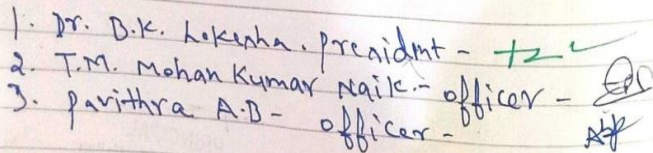 1. Dr. B.K. Lokesha. President -
2. T.M. Mohan Kumar Naik. - officer -
3. Pavithra A.B - officer -